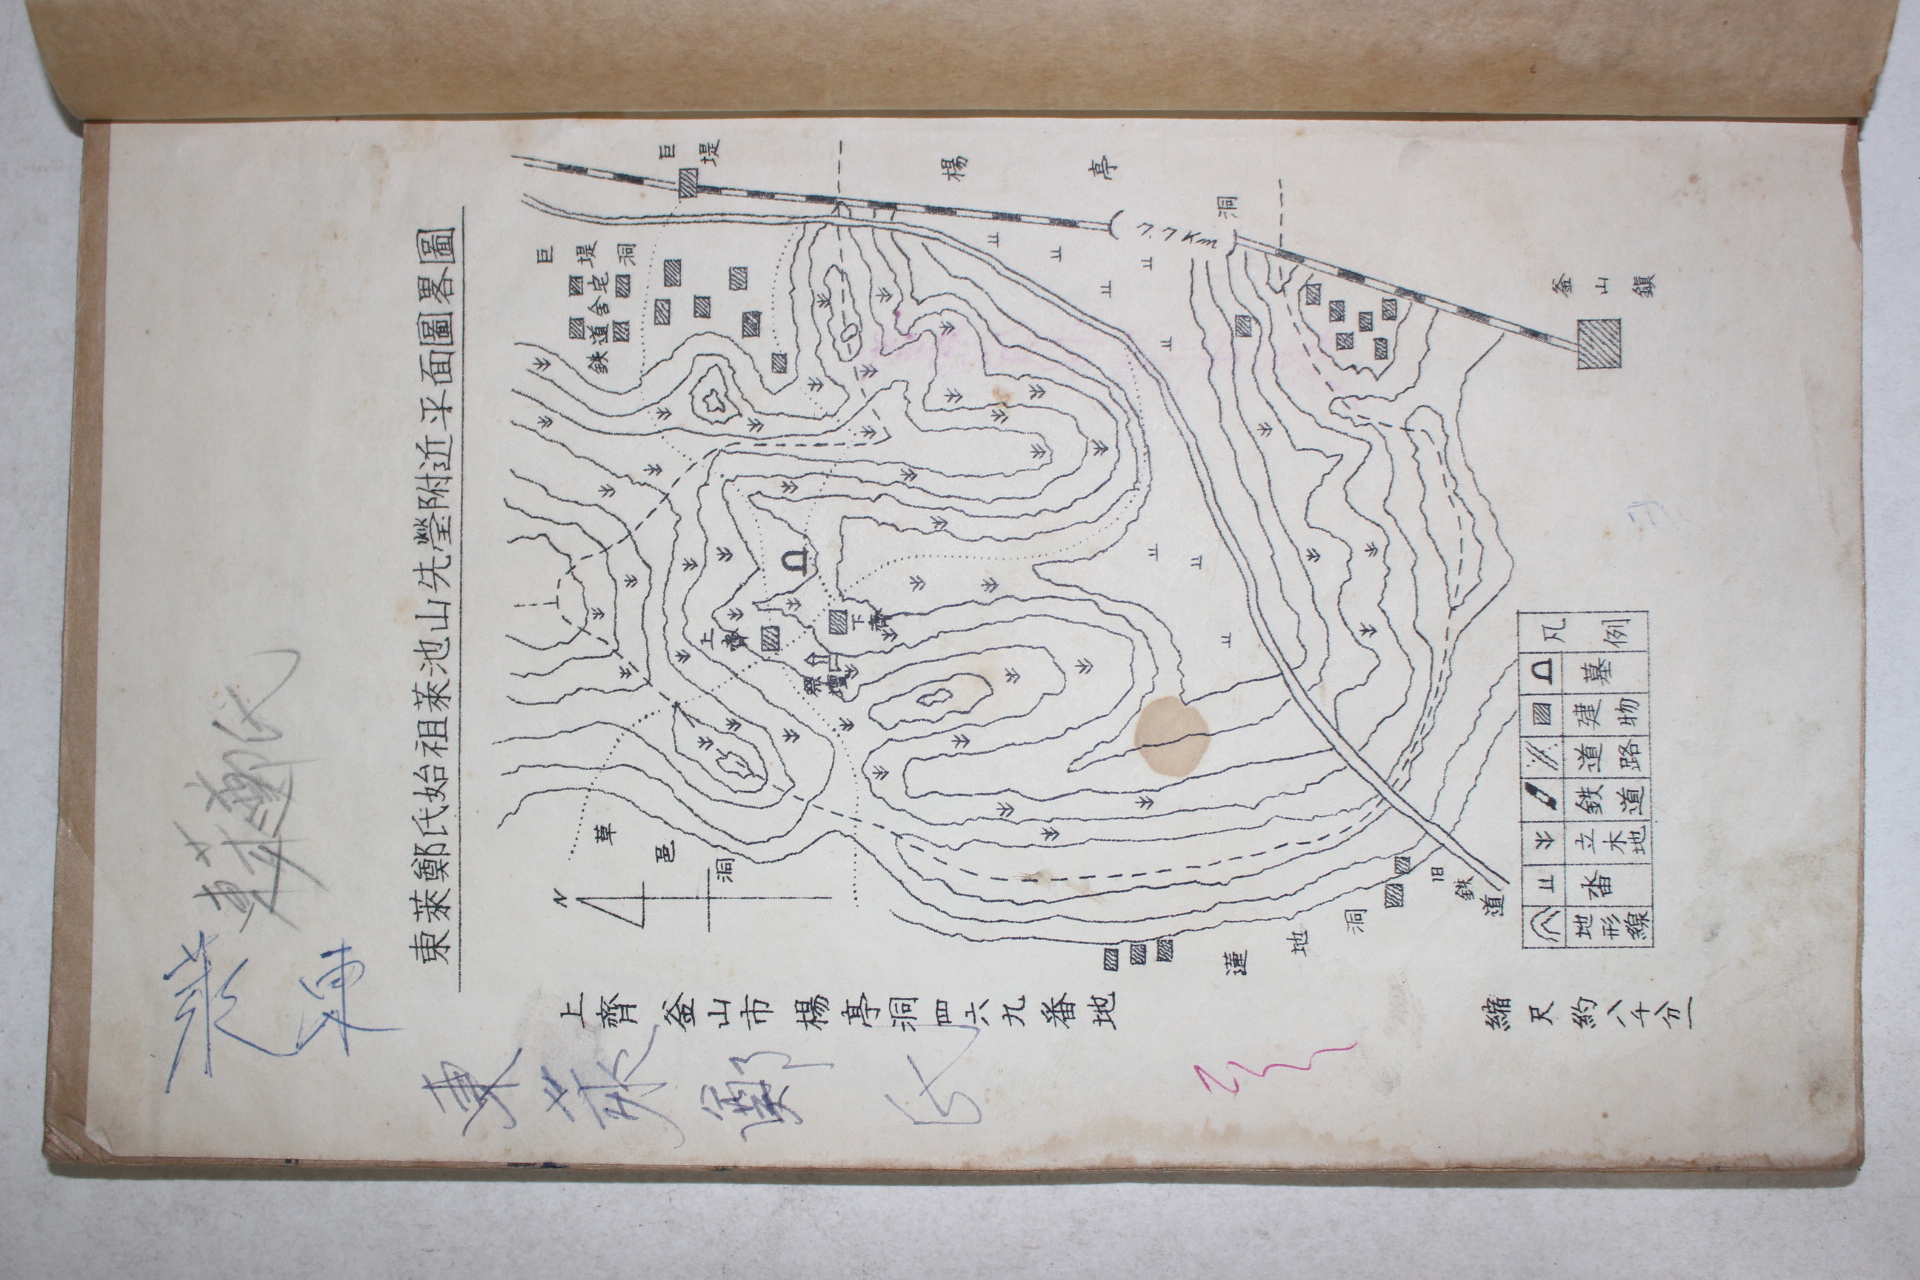 東萊鄭氏始祖萊池山先塋附近平面圖畧圖
巨堤
楊亭洞
7.7Km
釜山鎭
巨堤洞
鉄道舎宅
上齊
下齊
祭壇
草邑洞
N
蓮地洞
旧鉄道
凡例
墓
建物
道路
鉄道
立木地
畓
地形線
上齊 釜山市 楊亭洞四六九番地
縮尺約八千分一
東萊鄭氏
東萊鄭氏
萊
東